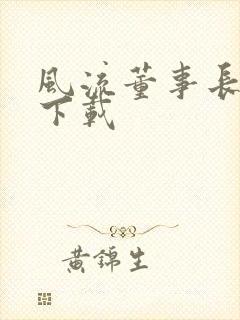 風流董事長
下載
黄錦生